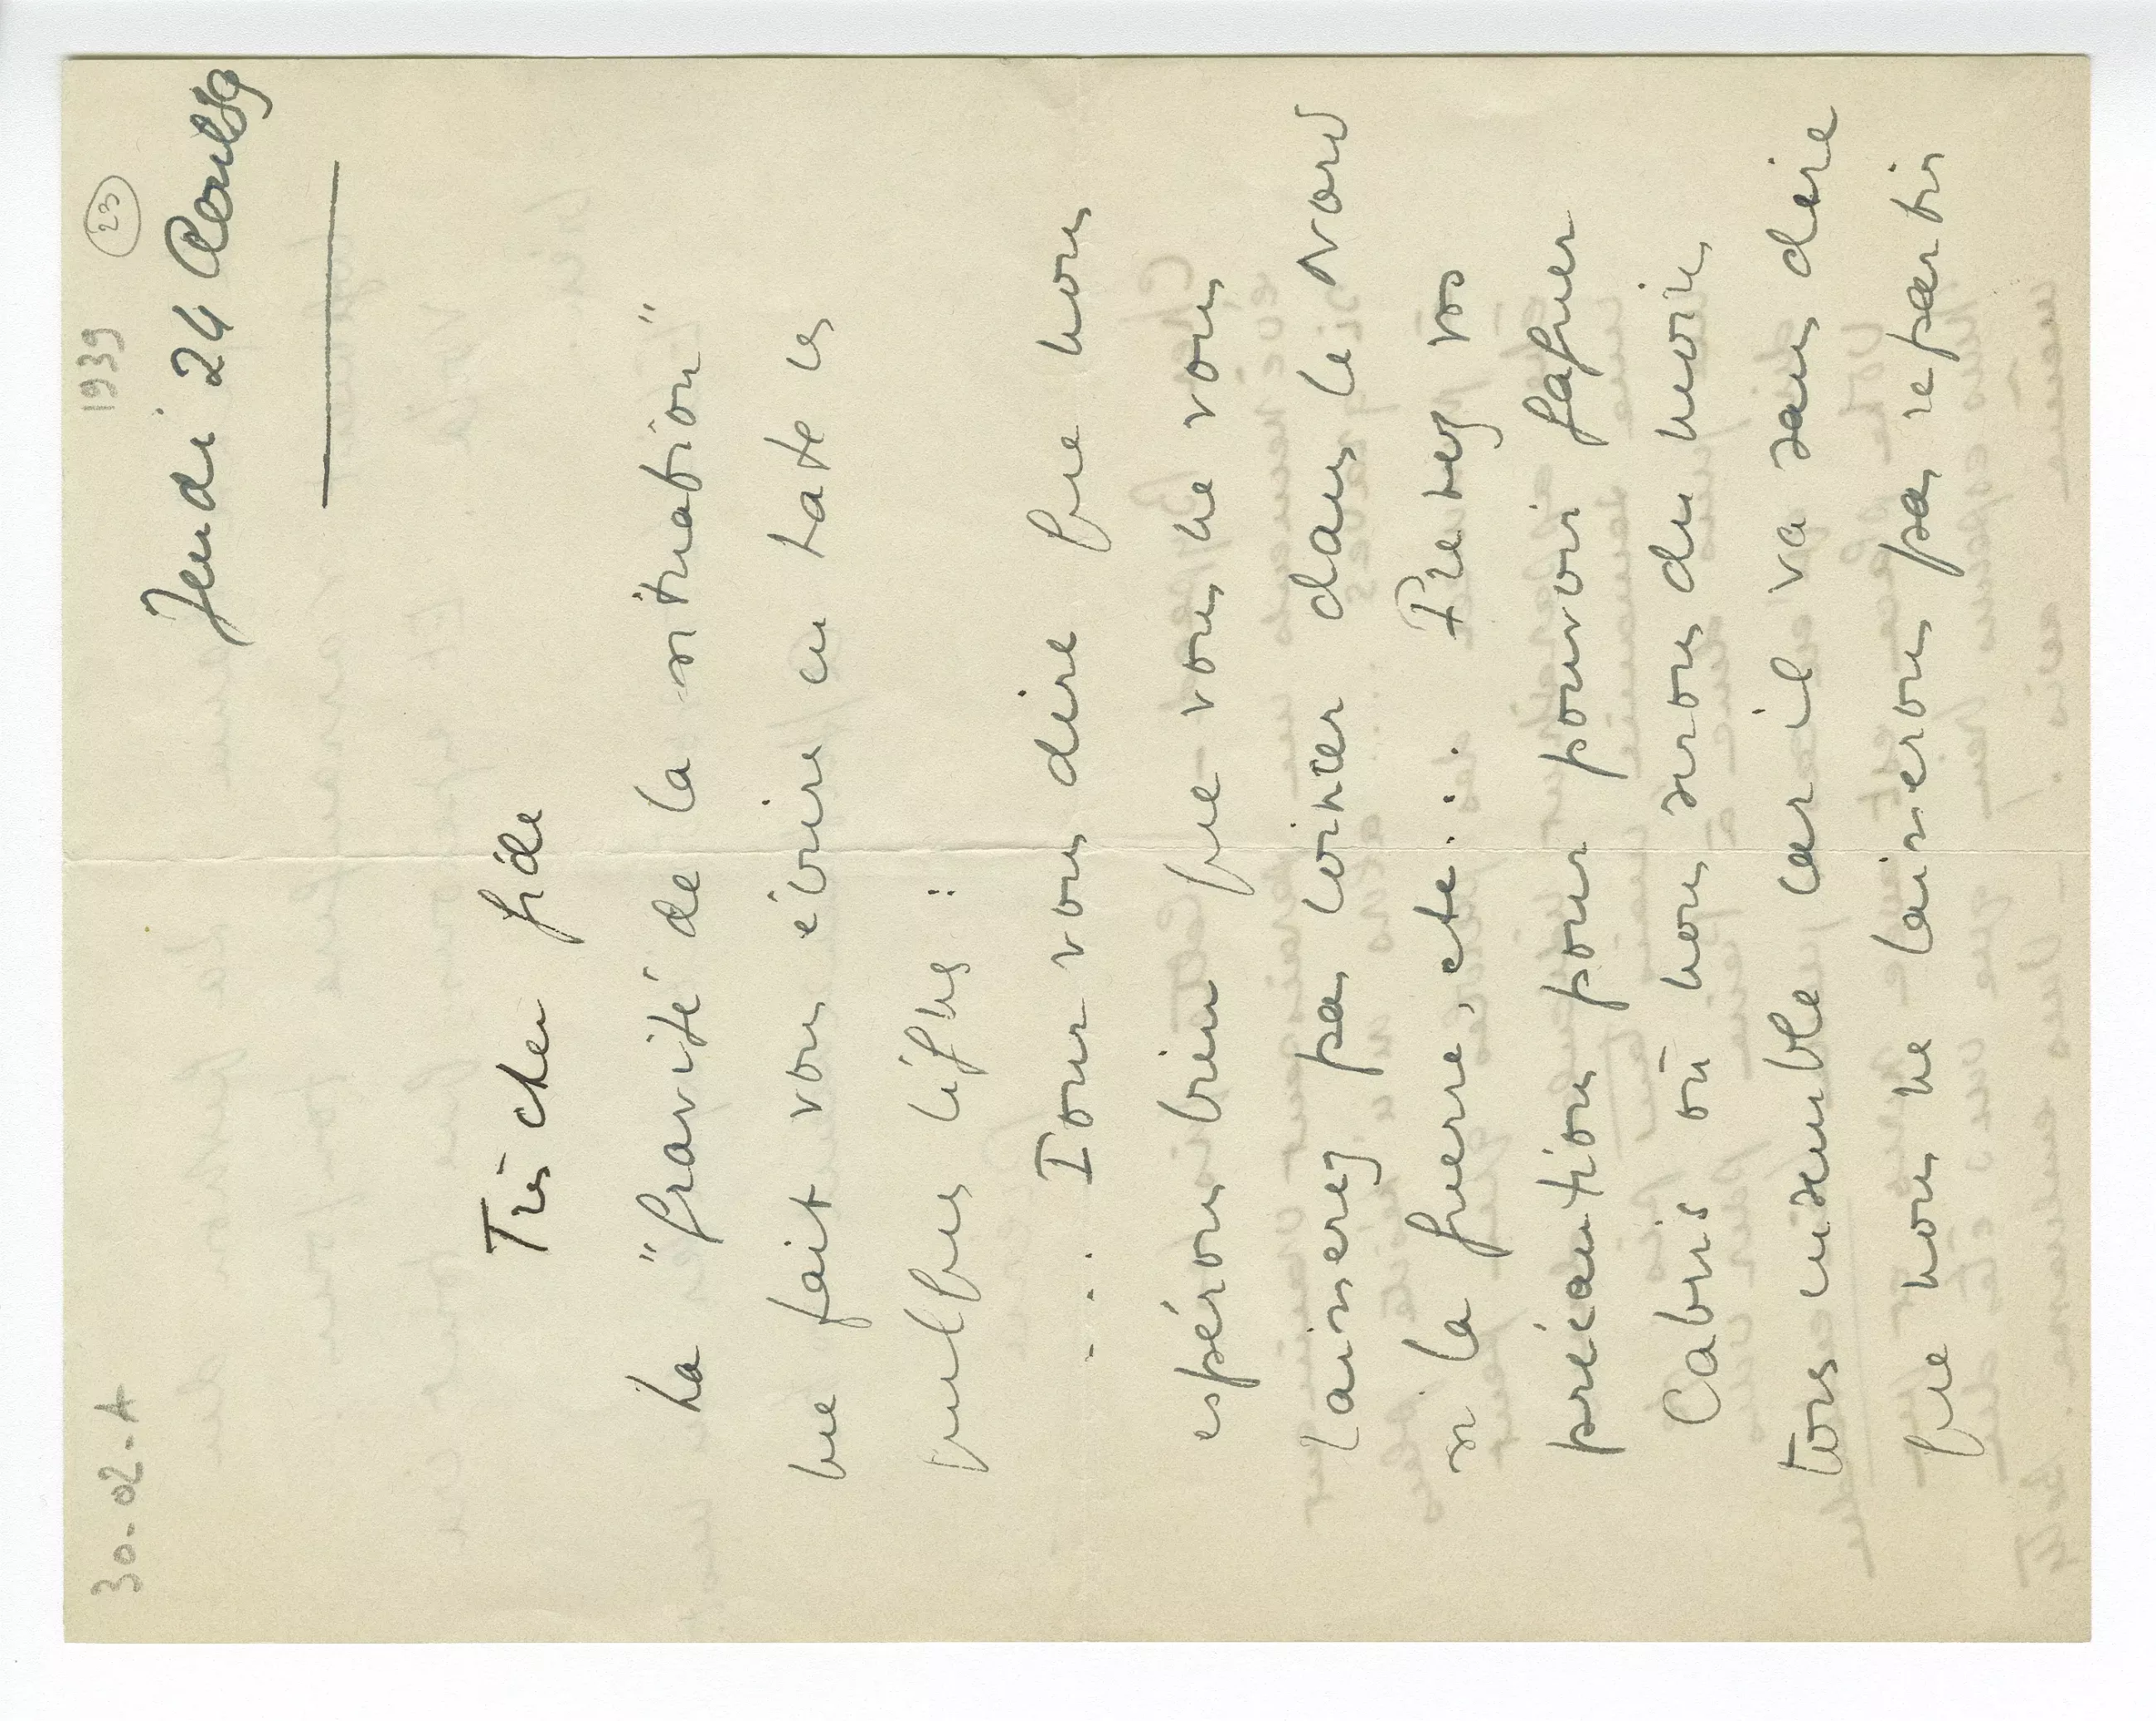 30-02-A 1939 23
Jeudi 24 Août 39
Très cher fidèle
La "gravité de la situation"
me fait vous écrire en hâte ces
quelques lignes :
... Pour vous dire que nous
espérons bien que vous ne vous
laisserez pas coincer dans le Nord
si la guerre, etc... Prenez vos
précautions pour pouvoir gagner
Cabris où nous serons du moins
tous ensemble car il va sans dire
que nous ne laisserons pas repartir